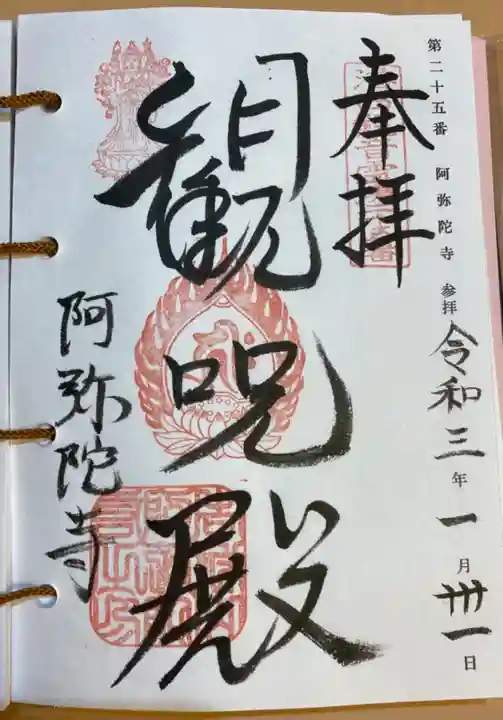 第二十五番 阿弥陀寺 参拝 令和三年一月卅一日
奉拝
観呪殿
阿弥陀寺